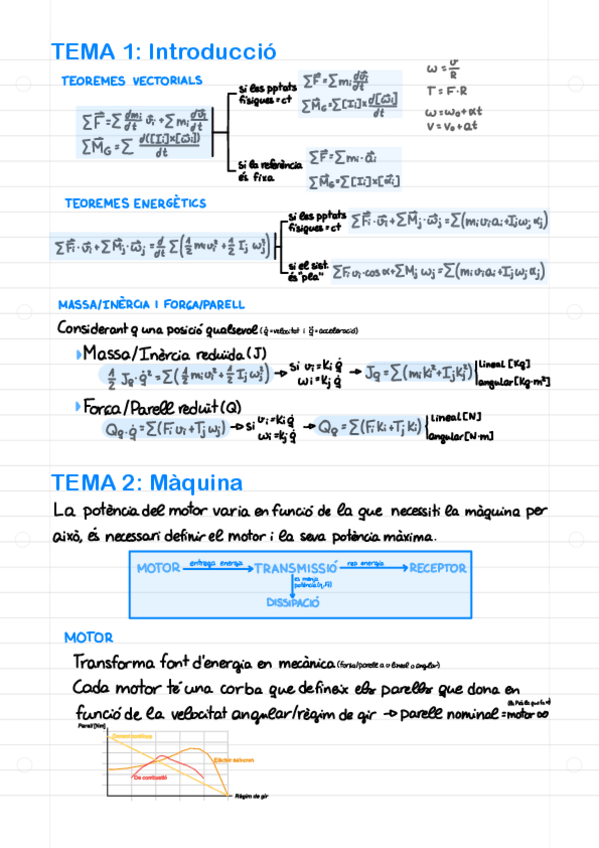 TEMA 1: Introducció
TEOREMES VECTORIALS
ΣF⃗=Σ dmi/dt v⃗i + Σmi dv⃗i/dt
ΣM⃗G=Σ d([Ii]x[ω⃗i])/dt
si les pptats físiques=ct
ΣF⃗=Σmi dv⃗i/dt
ΣM⃗G=Σ[Ii]x d[ω⃗i]/dt
si la referència és fixa
ΣF⃗=Σmi·a⃗i
ΣM⃗G=Σ[Ii]x[α⃗i]
ω=v/R
T=F·R
ω=ω0+αt
V=V0+at
TEOREMES ENERGÈTICS
ΣF⃗i·v⃗i+ΣM⃗j·ω⃗j=d/dt Σ(1/2 mivi²+1/2 Ij ωj²)
si les pptats físiques=ct
ΣF⃗i·v⃗i+ΣM⃗j·ω⃗j=Σ(miviai+Ijωjαj)
si el sist. és "pla"
ΣFi vi·cosα+ΣMj ωj=Σ(miviai+Ijωjαj)
MASSA/INÈRCIA I FORÇA/PARELL
Considerant q una posició qualsevol (q̇=velocitat i q̈=acceleració)
Massa/Inèrcia reduïda (J)
1/2 Jq·q̇²=Σ(1/2 mivi²+1/2 Ij ωj²) → si vi=Ki q̇ ωi=Kj q̇ → Jq=Σ(mi ki²+IjKj²) lineal [Kg] angular [Kg·m²]
Força/Parell reduït (Q)
Qq·q̇=Σ(Fi vi+Tj ωj) → si vi=Ki q̇ ωi=Kj q̇ → Qq=Σ(Fi Ki+Tj Ki) lineal [N] angular [N·m]
TEMA 2: Màquina
La potència del motor varia en funció de la que necessiti la màquina per
això, és necessari definir el motor i la seva potència màxima.
MOTOR entrega energia TRANSMISSIÓ rep energia RECEPTOR
es menja potència (η, Fi)
DISSIPACIÓ
MOTOR
Transforma font d'energia en mecànica (força/parell a v lineal o angular)
Cada motor té una corba que defineix els parells que dona en
funció de la velocitat angular/règim de gir → parell nominal=motor ∞
Parell [Nm]
Corrent contínua
Elèctric asíncron
De combustió
Règim de gir